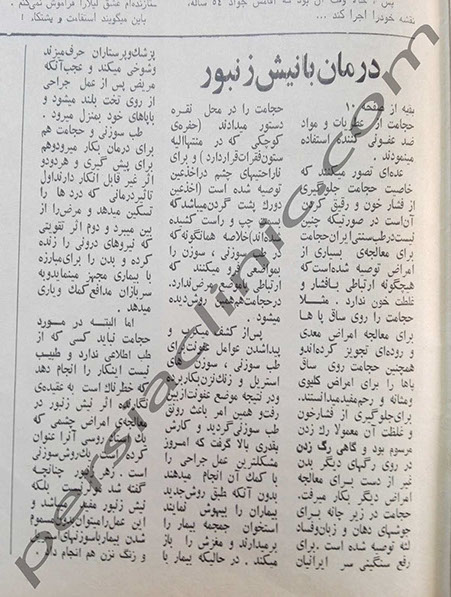 پس ، شاه وقت آن بود که آقامین جواد ۵۴ ساله،
نقشه خودرا اجرا کند ...
سازنده‌ام عشق لیلارا فراموش نمی‌کنم .
باین میگویند استقامت و پشتکار !
درمان بانیش زنبور
بقیه از صفحه ۱۰
حجامت از عطریات و مواد
ضد عفونی کننده استفاده
مینمودند .
عده‌ای تصور میکنند که
خاصیت حجامت جلوگیری
از فشار خون و رقیق کردن
آن‌است در صورتیکه چنین
نیست‌درطب‌سنتی‌ایران‌حجامت
برای معالجه‌ی بسیاری از
امراض توصیه شده‌است‌که
هیچگونه ارتباطی بافشار و
غلظت خون ندارد . مثلا
حجامت را روی ساق پا ها
برای معالجه امراض معدی
و روده‌ای تجویز کرده‌اندو
همچنین حجامت روی ساق
پاها را برای امراض کلیوی
ومثانه و رحم‌مفیدمیدانستند.
برای‌جلوگیری از فشارخون
و غلظت آن معمولا رگ زدن
مرسوم بود و گاهی رگ زدن
در روی رگهای دیگر بدن
غیر از دست برای معالجه
امراض دیگر بکار میرفت.
حجامت در زیر چانه برای
جوشهای دهان و زبان‌وفساد
لثه توصیه شده است .برای
رفع سنگینی سر ایرانیان
حجامت را در محل نقره
دستور میدادند (حفره‌ی
کوچکی که در منتهاالیه
ستون‌فقرات‌قراردارد) و برای
ناراحتیهای چشم دراخذعین
توصیه شده است (اخذعین
دورگ پشت گردن‌میباشدکه
بسمت چپ و راست کشیده
شده‌اند)خلاصه همانگونه‌که
در طب سوزنی ، سوزن را
بمواضعی فرو میکنند که
ارتباطی باموضع مرض‌ندارد.
درحجامت‌هم‌همین روش‌دیده
میشود .
پس‌از کشف میکرب و
پیداشدن عوامل عفونت‌برای
طب سوزنی ، سوزن های
استریل و زنگ‌نزن‌بکاربردند
ودر نتیجه موضع عفونت‌ازبین
رفت‌و همین امر باعث رونق
طب سوزنی گردید و کارش
بقدری بالا گرفت که امروز
مشکلترین عمل جراحی را
با کمک آن انجام میدهند
بدون آنکه طبق روش‌جدید
بیماران را بیهوش نمایند
استخوان جمجمه بیمار را
برمیدارند و مغزش را باز
میکند . در حالیکه بیمار با
پزشک‌وپرستاران حرف‌میزند
وشوخی میکند و عجب‌آنکه
مریض پس از عمل جراحی
از روی تخت بلند میشود و
باپاهای خود بمنزل میرود .
طب سوزنی و حجامت هم
برای درمان بکار میرودوهم
برای پیش گیری و هردودو
اثر غیر قابل انکار دارنداول
تاثیردرمانی که درد ها را
تسکین میدهد و مرض‌را از
بین میبرد و دوم اثر تقویتی
که نیروهای درونی را زنده
کرده و بدن را برای‌مبارزه
با بیماری مجهز مینماید‌وبه
سربازان مدافع‌کمک ویاری
میدهد .
اما البته در مورد
حجامت نباید کسی که از
طب اطلاعی ندارد و طبیب
نیست اینکار را انجام دهد
که خطرناک است به عقیده‌ی
نگارنده اثر نیش زنبور در
معالجه‌ی امراض چشمی که
یک دهقان روسی آنرا عنوان
کرده است یک‌روش‌سوزنی
است . زهر زنبور چنانچه
گفته شد موثرنیست بلکه
نیش زنبور مفید میباشد و
این عمل‌رامیتوان‌برای‌مسموم
شدن بیمارباسوزنهای‌استریل
و زنگ نزن هم انجام داد .
persiaclinic.com